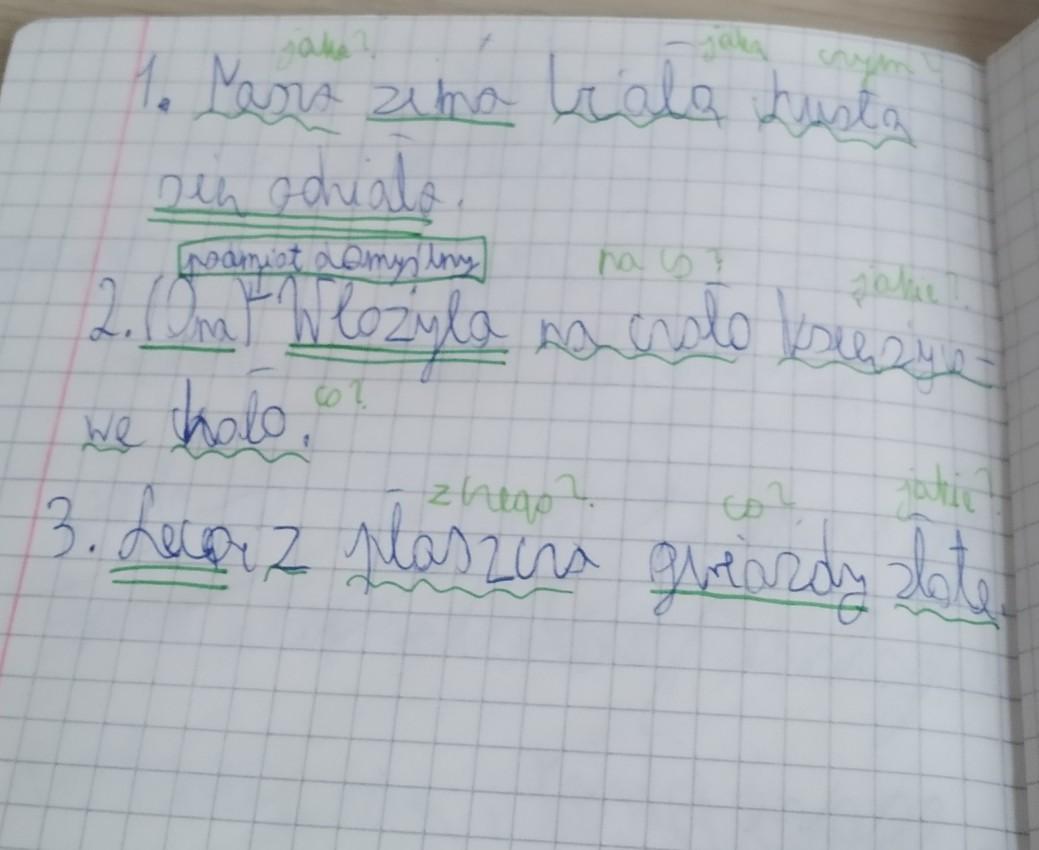 jaka? jaką czym?
1. Pani zima białą chustą
się odziała.
podmiot domyślny na co? jakie?
2. (Ona) Włożyła na czoło księżyco-
we koło. co?
z czego? co? jakie?
3. Lecą z płaszcza gwiazdy złote.